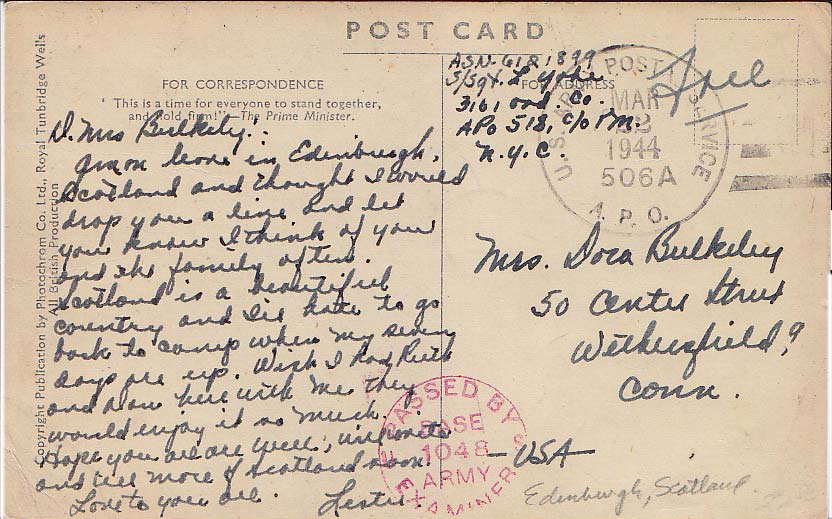 POST CARD
Copyright Publication by Photochrom Co., Ltd., Royal Tunbridge Wells
All British Production
FOR CORRESPONDENCE
"This is a time for everyone to stand together,
and hold firm!"—The Prime Minister.
D. Mrs Bulkeley:
I'm on leave in Edinburgh,
Scotland and thought I would
drop you a line and let
you know I think of you
and the family often.
Scotland is a beautiful
country and I'll hate to go
back to camp when my seven
days are up. Wish I had Ruth
and here with me they
would enjoy it so much.
Hope you are all well, will write
and tell more of Scotland soon.
Love to you all. Lester
ASN. 6181899
S/Sgt. L. Yohe
3161 Ord. Co.
APO 518, c/o P.M.
N.Y.C.
FOR ADDRESS
Free
U.S. ARMY POSTAL SERVICE
MAR
22
1944
506A
A.P.O.
Mrs. Dora Bulkeley
50 Center Street
Wethersfield, 9
Conn.
—USA—
PASSED BY
BASE
1048
ARMY
EXAMINER
Edinburgh, Scotland.